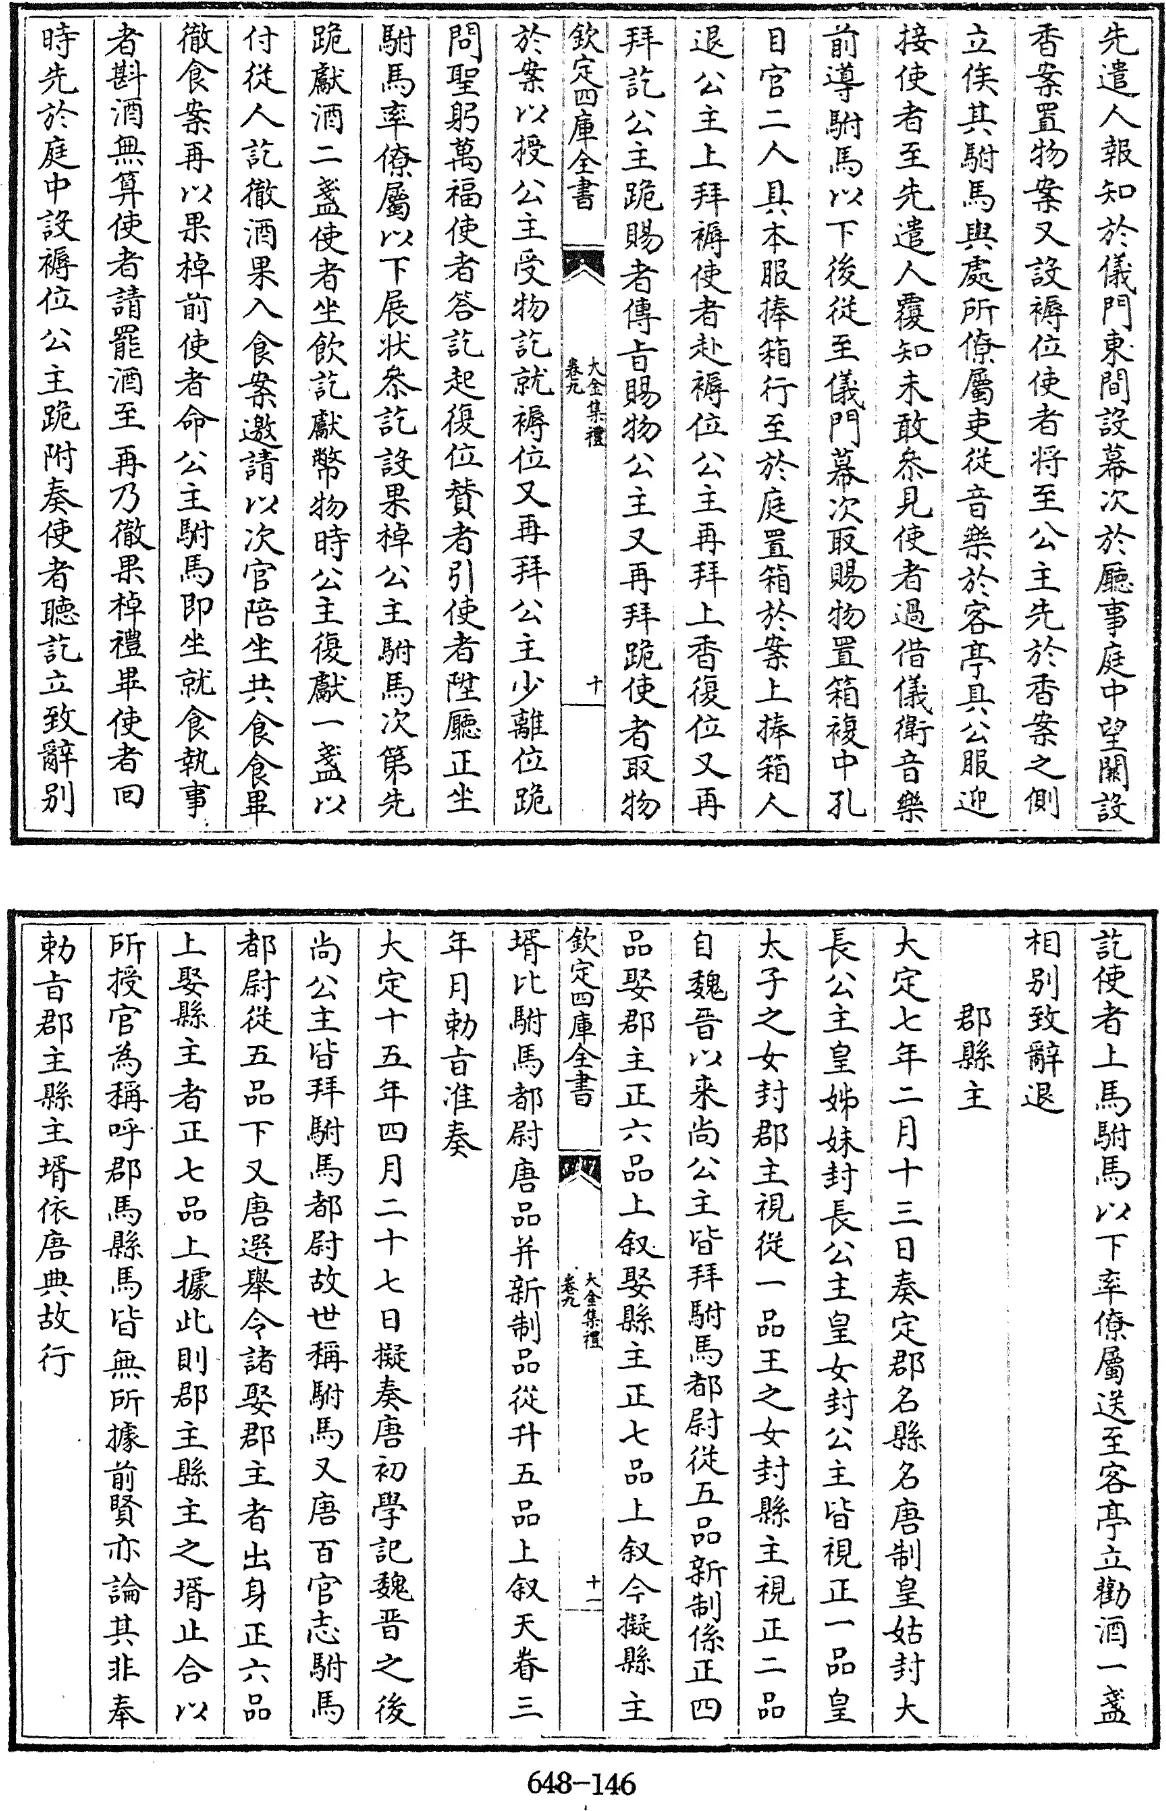 先遣人報知於儀門東間設幕次於廳事庭中望闕設
香案置物案又設褥位使者将至公主先於香案之側
立俟其駙馬與處所僚屬吏從音樂於客亭具公服迎
接使者至先遣人覆知未敢叅見使者過借儀衛音樂
前導駙馬以下後從至儀門幕次取賜物置箱複中孔
目官二人具本服捧箱行至於庭置箱於案上捧箱人
退公主上拜褥使者赴褥位公主再拜上香復位又再
拜訖公主跪賜者傳㫖賜物公主又再拜跪使者取物
欽定四庫全書
大金集禮
卷九
十
於案以授公主受物訖就褥位又再拜公主少離位跪
問聖躬萬福使者答訖起復位賛者引使者陞廳正坐
駙馬率僚屬以下展状叅訖設果棹公主駙馬次第先
跪獻酒二盞使者坐飲訖獻幣物時公主復獻一盞以
付從人訖徹酒果入食案邀請以次官陪坐共食食畢
徹食案再以果棹前使者命公主駙馬即坐就食執事
者斟酒無算使者請罷酒至再乃徹果棹禮畢使者回
時先於庭中設褥位公主跪附奏使者聽訖立致辭别
訖使者上馬駙馬以下率僚屬送至客亭立勸酒一盞
相别致辭退
郡縣主
大定七年二月十三日奏定郡名縣名唐制皇姑封大
長公主皇姊妹封長公主皇女封公主皆視正一品皇
太子之女封郡主視從一品王之女封縣主視正二品
自魏晋以来尚公主皆拜駙馬都尉從五品新制係正四
品娶郡主正六品上叙娶縣主正七品上叙今擬縣主
欽定四庫全書
大金集禮
卷九
十一
壻比駙馬都尉唐品并新制品從升五品上叙天眷三
年月勅㫖准奏
大定十五年四月二十七日擬奏唐初學記魏晋之後
尚公主皆拜駙馬都尉故世稱駙馬又唐百官志駙馬
都尉從五品下又唐選舉令諸娶郡主者出身正六品
上娶縣主者正七品上據此則郡主縣主之壻止合以
所授官為稱呼郡馬縣馬皆無所據前賢亦論其非奉
勅㫖郡主縣主壻依唐典故行
648-146